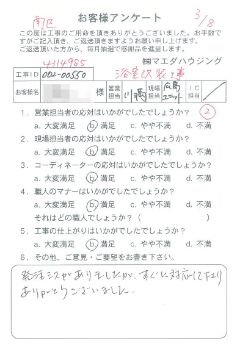 南区
お客様アンケート
3/8
この度は工事のご用命を頂きありがとうございました。お手数で
すがご記入頂き、ご返送頂きますようお願い申し上げます。
ご返送頂いた方から、毎月抽選で感謝品を進呈します。
㈱マエダハウジング
工事ID
様
営業担当
現場担当
IC担当
1．営業担当者の応対はいかがでしたでしょうか？ ②
a. 大変満足 b. 満足 c. やや不満 d. 不満
2．現場担当者の応対はいかがでしたでしょうか？
a. 大変満足 b. 満足 c. やや不満 d. 不満
3．コーディネーターの応対はいかがでしたでしょうか？
a. 大変満足 b. 満足 c. やや不満 d. 不満
4．職人のマナーはいかがでしたでしょうか？
a. 大変満足 b. 満足 c. やや不満 d. 不満
それはどの職人でしょうか？（ ）
5．工事の仕上がりはいかがでしたでしょうか？
a. 大変満足 b. 満足 c. やや不満 d. 不満
6．その他、ご意見・ご要望をお書き下さい。
発注ミスがありましたが、すぐに対応して下さり
ありがとうございました。